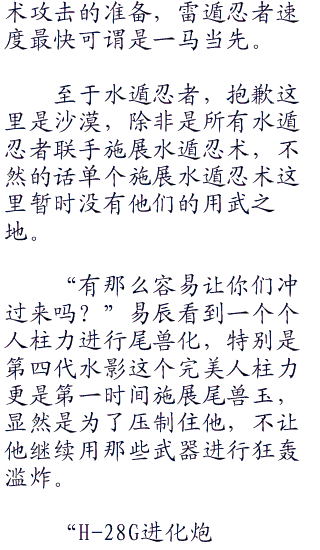 术攻击的准备，雷遁忍者速
度最快可谓是一马当先。
至于水遁忍者，抱歉这
里是沙漠，除非是所有水遁
忍者联手施展水遁忍术，不
然的话单个施展水遁忍术这
里暂时没有他们的用武之
地。
“有那么容易让你们冲
过来吗？”易辰看到一个个
人柱力进行尾兽化，特别是
第四代水影这个完美人柱力
更是第一时间施展尾兽玉，
显然是为了压制住他，不让
他继续用那些武器进行狂轰
滥炸。
“H-28G进化炮